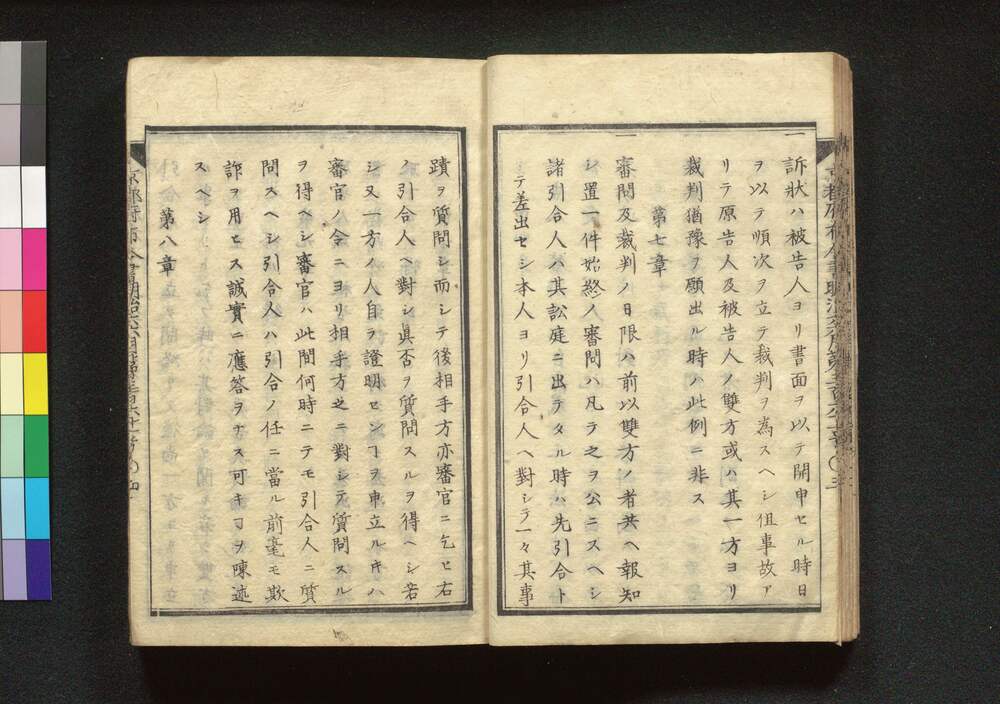 一訴狀ハ被告人ヨリ書面ヲ以テ開申セル時日
ヲ以テ順次ヲ立テ裁判ヲ為スヘシ但事故ア
リテ原告人及被告人ノ雙方或ハ其一方ヨリ
裁判猶豫ヲ願出ル時ハ此例ニ非ス
第七章
一審問及裁判ノ日限ハ前以雙方ノ者共ヘ報知
シ置一件始終ノ審問ハ凡テ之ヲ公ニスヘシ
諸引合人ハ其訟庭ニ出テタル時ハ先引合ト
テ差出セシ本人ヨリ引合人ヘ對シテ一々其事
蹟ヲ質問シ而シテ後相手方亦審官ニ乞ヒ右
ノ引合人ヘ對シ眞否ヲ質問スルヲ得ヘシ若
シ又一方ノ人自ラ證明センヿヲ申立ルキハ
審官ノ令ニヨリ相手方之ニ對シテ質問スル
ヲ得ヘシ審官ハ此間何時ニテモ引合人ニ質
問スヘシ引合人ハ引合ノ任ニ當ル前毫モ欺
詐ヲ用ヒス誠實ニ應答ヲナス可キヿヲ陳述
スヘシ
第八章